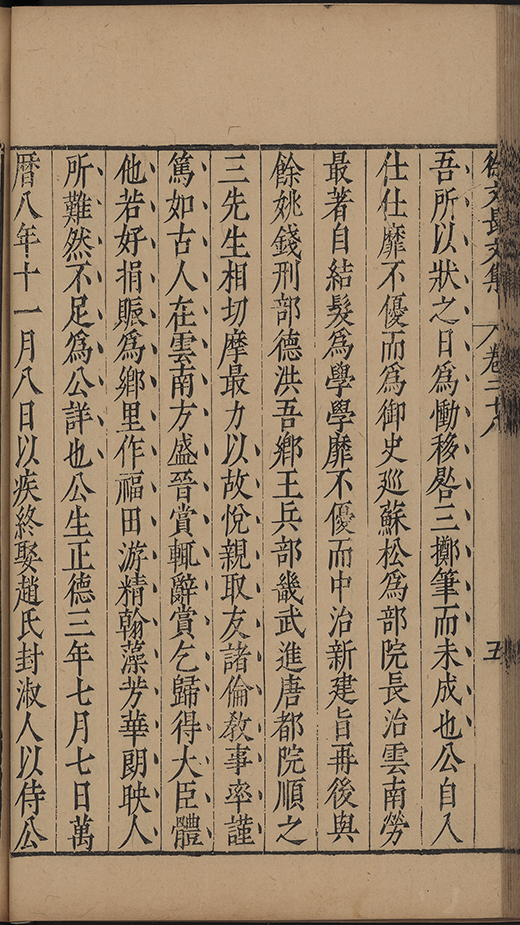 徐文長文集 卷二十八 五
吾所以狀之日為慟移晷三擲筆而未成也公自入
仕仕靡不優而為御史廵蘇松為部院長治雲南勞
最著自結髮為學學靡不優而中治新建旨再後與
餘姚錢刑部德洪吾鄉王兵部畿武進唐都院順之
三先生相切摩最力以故悅親取友諸倫敎事率謹
篤如古人在雲南方盛晉賞輒辭賞乞歸得大臣體
他若好捐賑為鄉里作福田游精翰藻芳華朗映人
所難然不足為公詳也公生正德三年七月七日萬
曆八年十一月八日以疾終娶趙氏封淑人以侍公